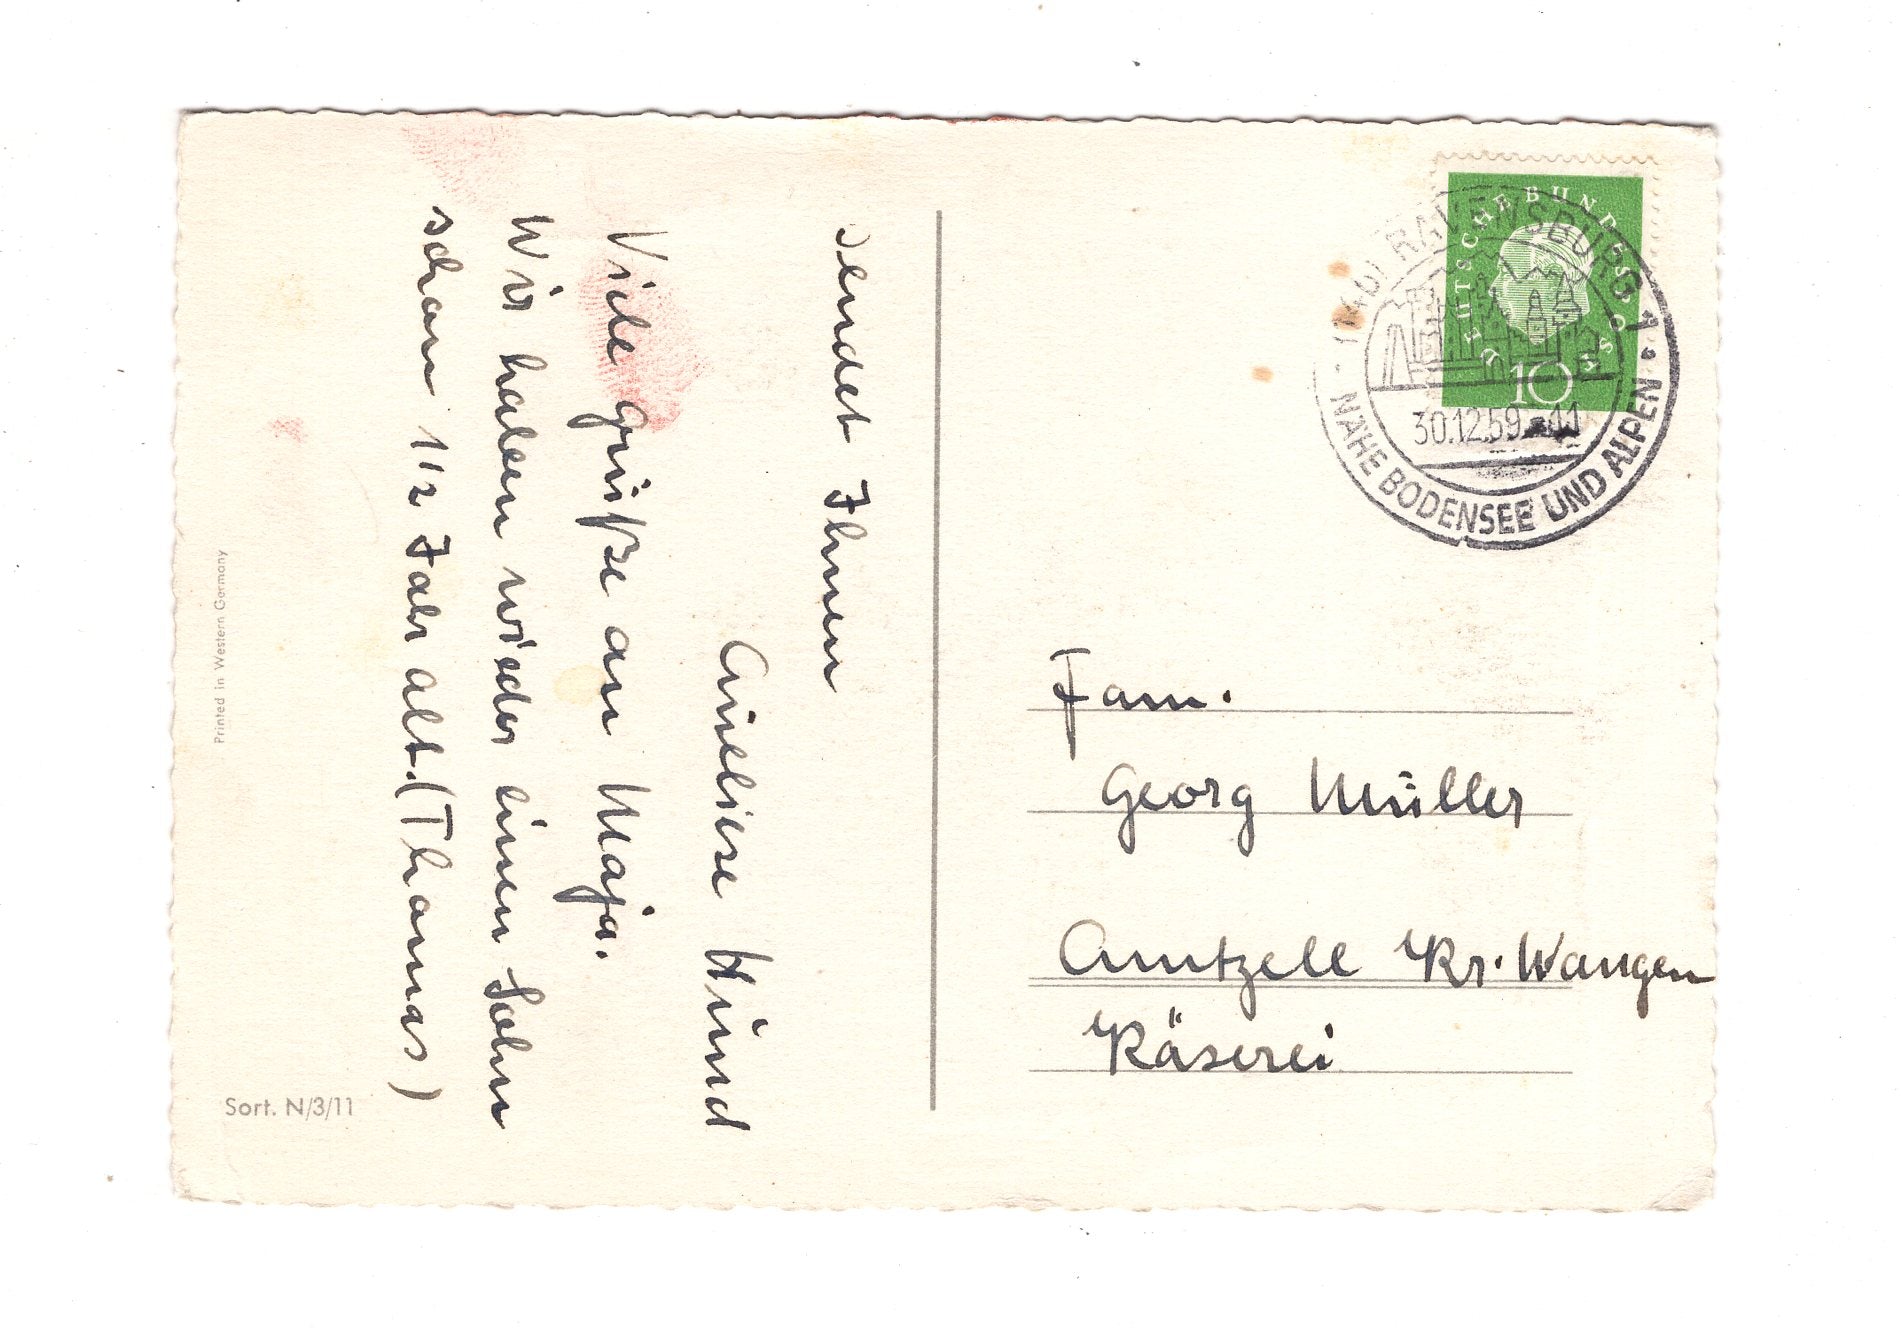 sendet Ihnen
Anneliese Hund
Viele Grüße an Maja.
Wir haben wieder einen Sohn
schon 1 1/2 Jahr alt. (Thomas)
Printed in Western Germany
Sort. N/3/11
DEUTSCHE BUNDESPOST
10
RAVENSBURG 1
30.12.59-11
NÄHE BODENSEE UND ALPEN
Fam.
Georg Müller
Amtzell Kr. Wangen
Käserei